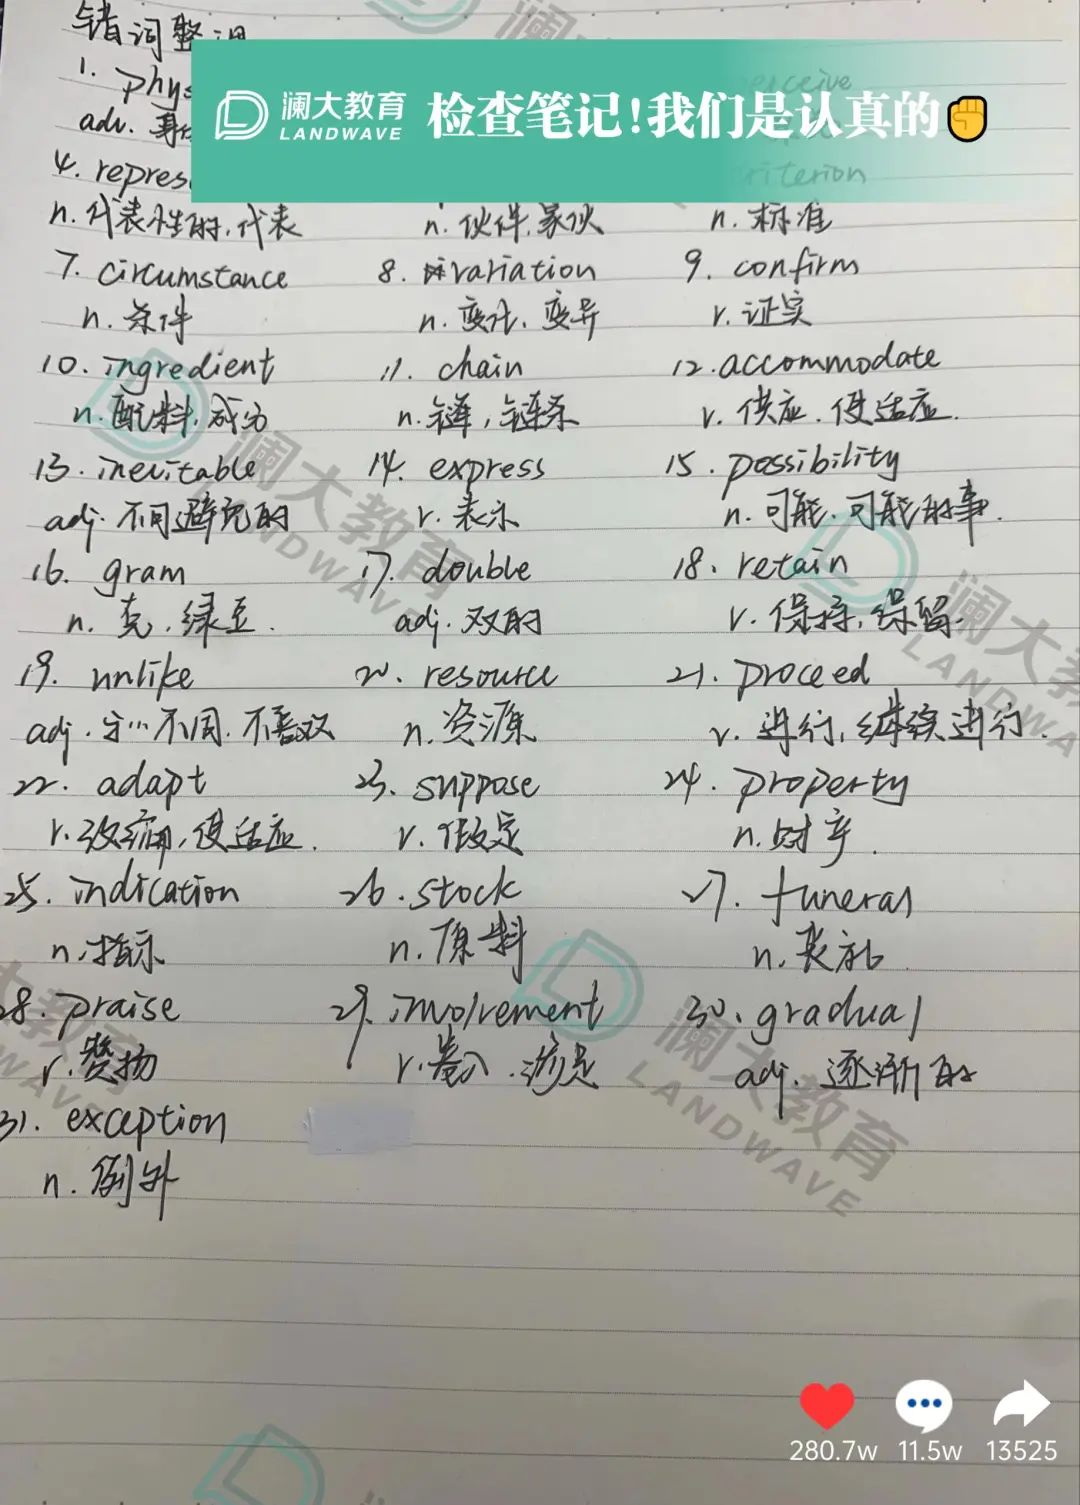 错词整理
1. phys
澜大教育 LANDWAVE 检查笔记!我们是认真的✊
adv. 身
4. repres
criterion
n. 代表性的,代表 n. 伙件,家伙 n. 标准
7. circumstance 8. variation 9. confirm
n. 条件 n. 变化、变异 v. 证实
10. ingredient 11. chain 12. accommodate
n. 配料,成分 n. 链,链条 v. 供应、使适应.
13. inevitable 14. express 15. possibility
adj. 不可避免的 v. 表示 n. 可能、可能的事.
16. gram 17. double 18. retain
n. 克,绿豆. adj. 双的 v. 保持,保留.
19. unlike 20. resource 21. proceed
adj. 与…不同,不喜欢 n. 资源 v. 进行,继续进行.
22. adapt 23. suppose 24. property
v. 改编,使适应. v. 假定 n. 财产.
25. indication 26. stock 27. funeral
n. 指示 n. 原料 n. 丧礼
28. praise 29. involvement 30. gradual
v. 赞扬 v. 卷入、涉足 adj. 逐渐的
31. exception
n. 例外
澜大教育
LANDWAVE
澜大教育
LANDWAVE
澜大教育
LANDWAVE
280.7w 11.5w 13525